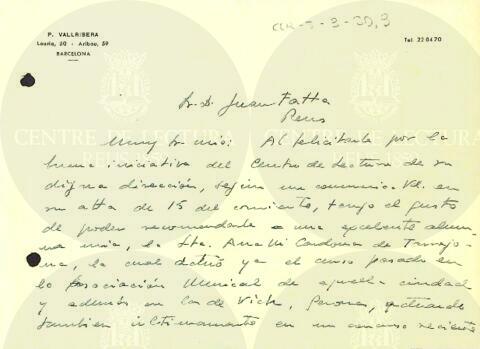 P. VALLRIBERA
Lauria, 50 - Aribau, 59
BARCELONA
Tel. 22 04 70
Sr. D. Juan Fatta
Reus
Muy Sr. mio: Al felicitarle por la
buena iniciativa del Centro de Lectura de su
digna dirección, según me comunica Vd. en
su atta de 15 del corriente, tengo el gusto
de poder recomendarle a una excelente alum-
na mia, la Srta. Cardona de Tarrago-
na, la cual actuó ya el curso pasado en
la Asociación Musical de aquella ciudad
y además en las de Vich, Gerona, actuando
tambien ultimamente en un concurso reciente
CENTRE DE LECTURA
REUS